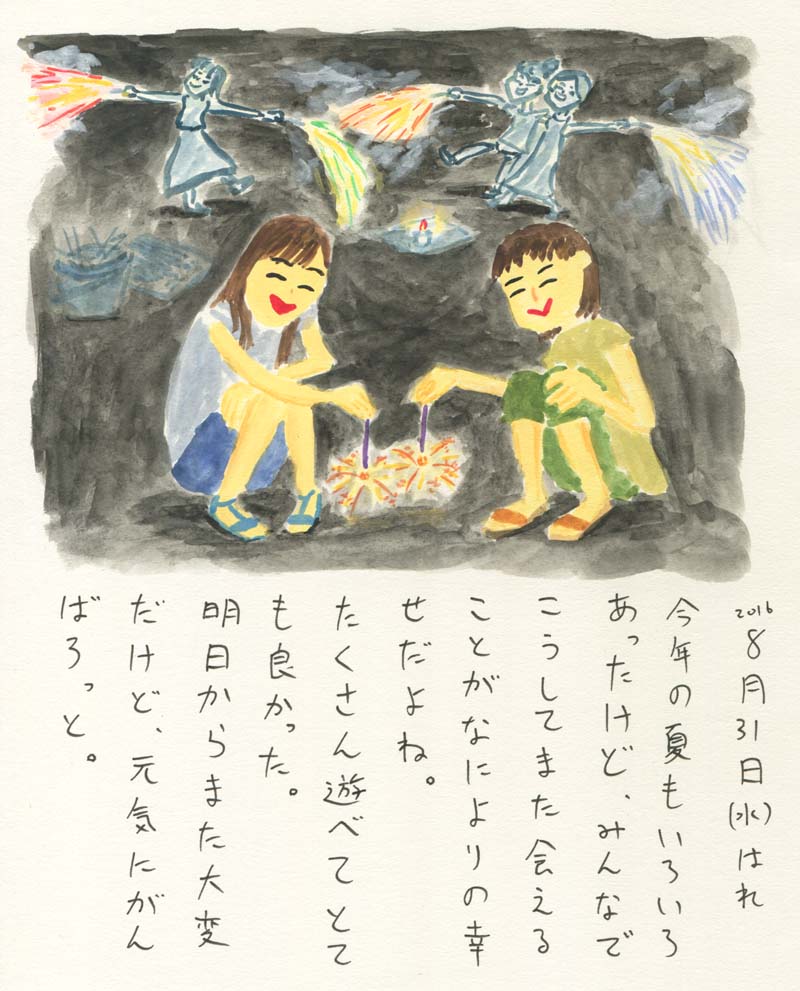 2016 8月31日(水)はれ
今年の夏もいろいろ
あったけど、みんなで
こうしてまた会える
ことがなによりの幸
せだよね。
たくさん遊べてとて
も良かった。
明日からまた大変
だけど、元気にがん
ばろっと。